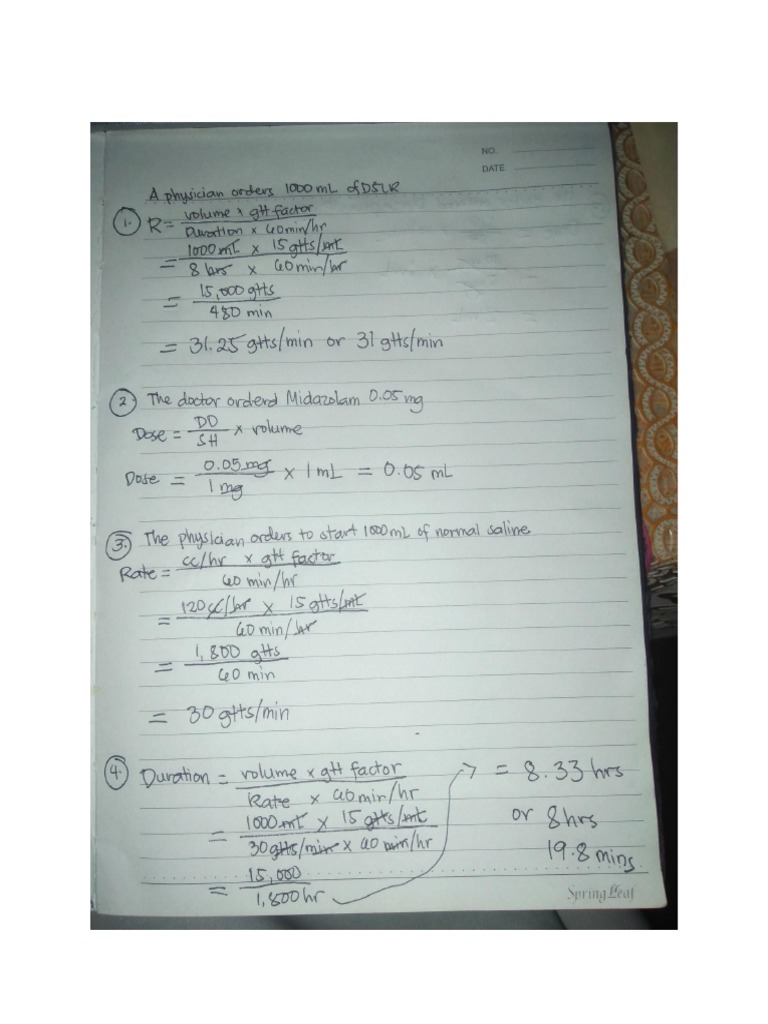 NO.
DATE
A physician orders 1000 mL of D5LR
1. R = volume x gtt factor
Duration x 60 min/hr
= 1000 mL x 15 gtts/mL
8 hrs x 60 min/hr
= 15,000 gtts
480 min
= 31.25 gtts/min or 31 gtts/min
2. The doctor orderd Midazolam 0.05 mg
Dose = DD
SH x volume
Dose = 0.05 mg
1 mg x 1 mL = 0.05 mL
3. The physician orders to start 1000 mL of normal saline
Rate = cc/hr x gtt factor
60 min/hr
= 120 cc/hr x 15 gtts/mL
60 min/hr
= 1,800 gtts
60 min
= 30 gtts/min
4. Duration = volume x gtt factor
Rate x 60 min/hr
= 1000 mL x 15 gtts/mL
30 gtts/min x 60 min/hr
= 15,000
1,800 hr
= 8.33 hrs
or 8 hrs
19.8 mins
Spring Leaf